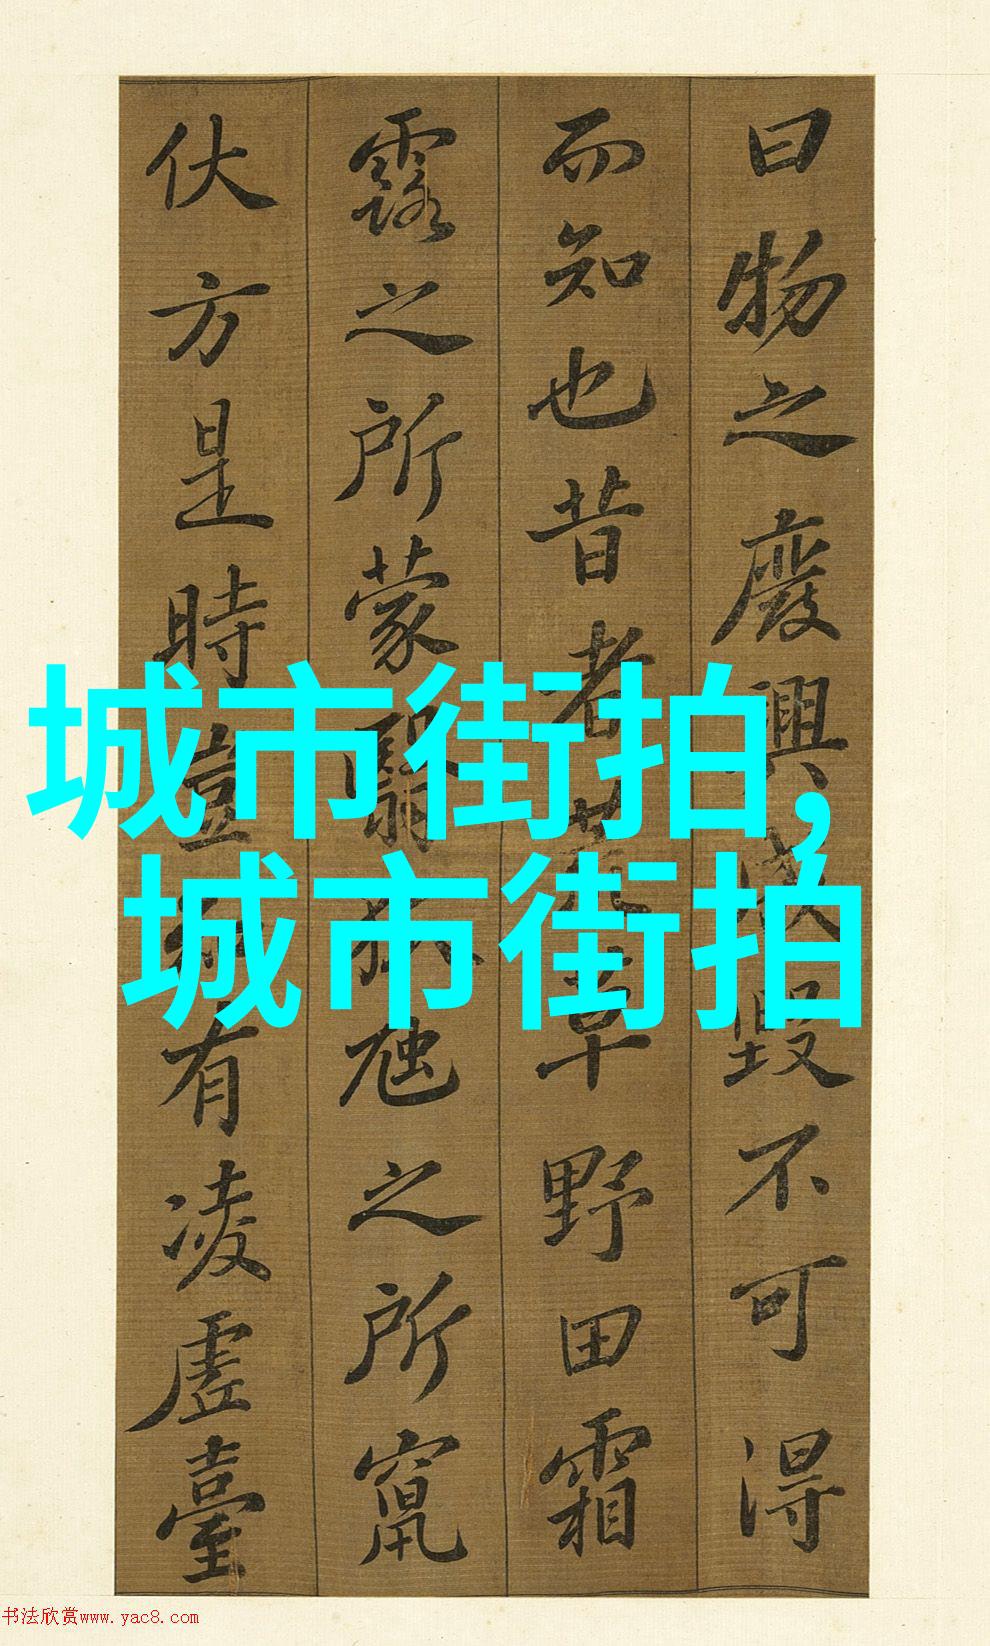 曰物之廢興成毀不可得
而知也昔者荒草野田霜
露之所蒙翳狐虺之所竄
伏方是時豈知有凌虛臺
城市街拍,
城市街拍
书法欣赏www.yac8.com